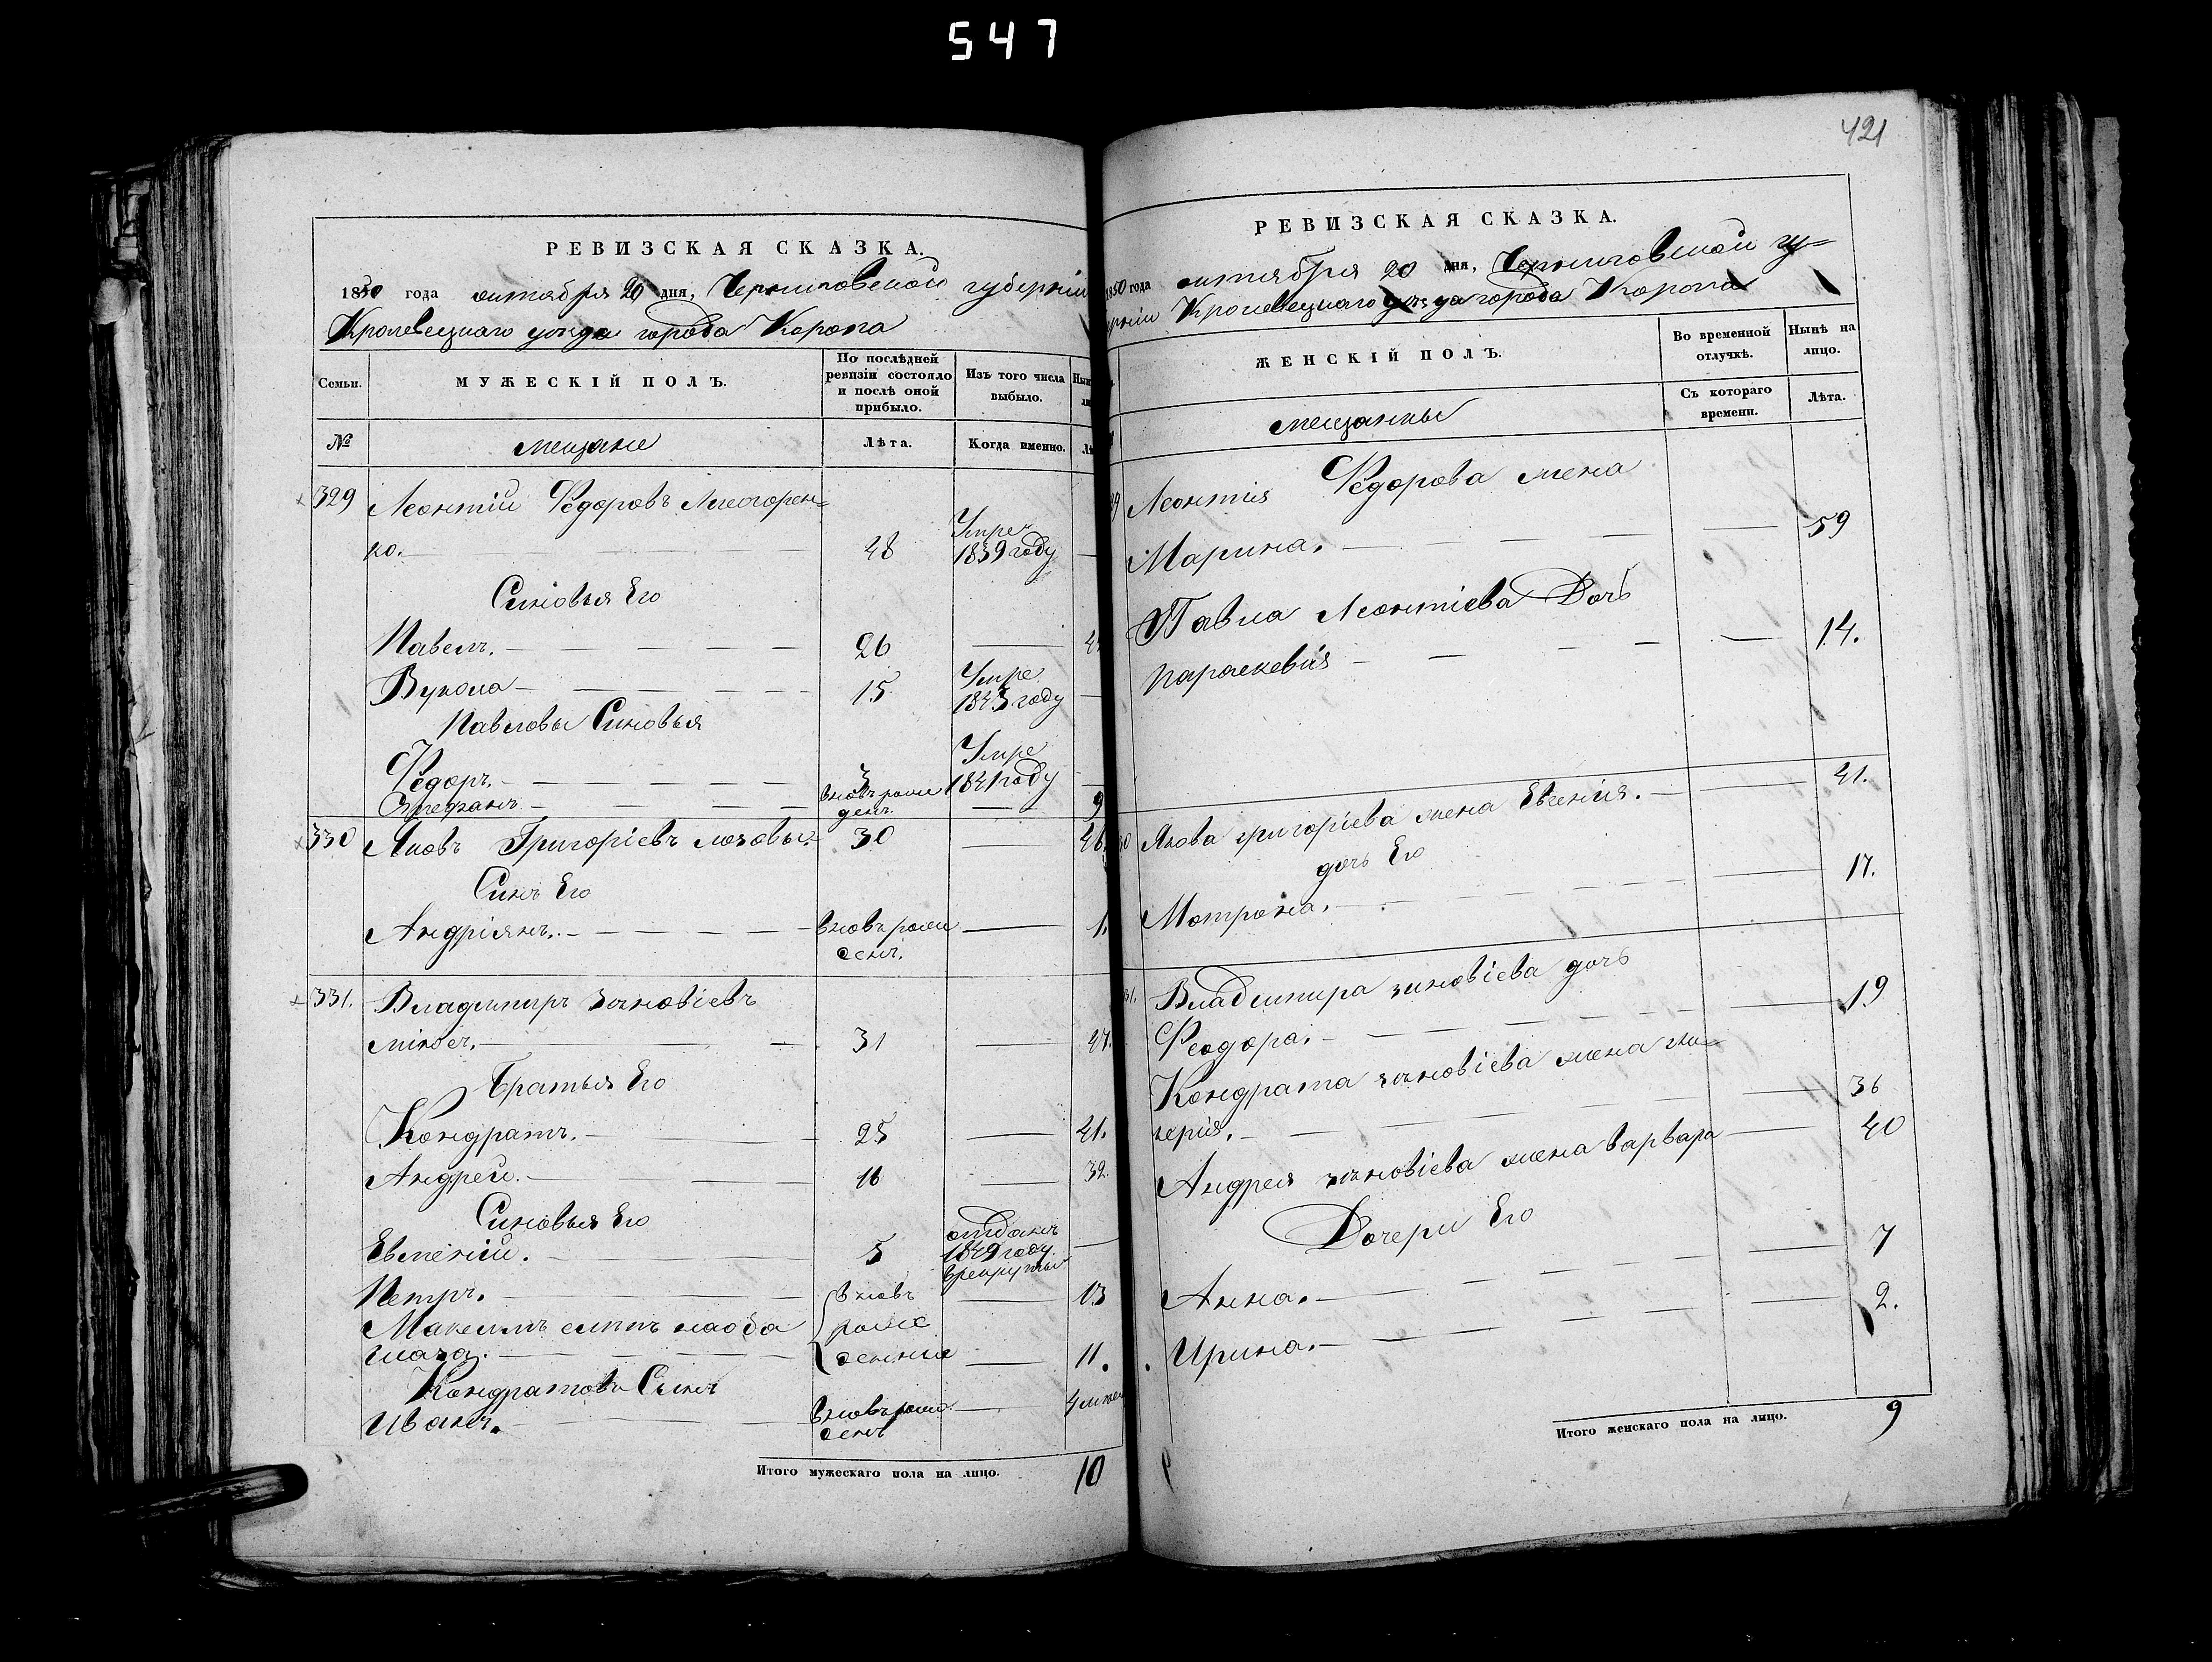 547
РЕВИЗСКАЯ СКАЗКА.
1850 года октября 20 дня, Черниговской губерніи
Кролевецкаго уезда города Коропа
Семьи.
МУЖЕСКІЙ ПОЛЪ.
По послѣдней
ревизіи состояло
и послѣ оной
прибыло.
Изъ того числа
выбыло.
№
мещане
Лѣта.
Когда именно.
329 Леонтій Федоровъ
ко. 48 Умре 1839 году
Синовья Его
Павелъ. 26
Вукола 15 Умре 1843 году
Павловы Синовья
Федоръ. 3 Умре 1841 году
Стефанъ вновь рожденъ. 9
330 Яковъ Григоріевъ 30 46
Синъ Его
Андріянъ. вновь рожденъ. 1.
331. Владимиръ Зиновіевъ
31 47.
Братья Его
Кондратъ. 25 41.
Андрей. 16 32.
Синовья Его
Евмений. 5 отданъ 1849 году в рекруты
Петръ. вновь 13
Максимъ рож
денние 11.
Кондратовъ Сынъ
Иванъ. вновь рожденъ
Итого мужескаго пола на лицо. 10
421
РЕВИЗСКАЯ СКАЗКА.
1850 года октября 20 дня, Черниговской гу=
берніи Кролевецкаго уезда города Коропа
ЖЕНСКІЙ ПОЛЪ.
Во временной
отлучкѣ.
Нынѣ на
лицо.
мещанкы
Съ котораго
времени.
Лѣта.
Леонтія Федорова жена
Марина. 59
Павла Леонтіева Дочь
Параскевія 14.
Якова григоріева жена Евгенія. 41.
дочь Его
Мотрона. 17.
31. Владимира зиновіева дочь
Феодора. 19
Кондрата зиновіева жена гли=
керія. 36
Андрея зиновіева жена варвара 40
Дочери Его
Анна. 7
Ирина. 2.
Итого женскаго пола на лицо. 9